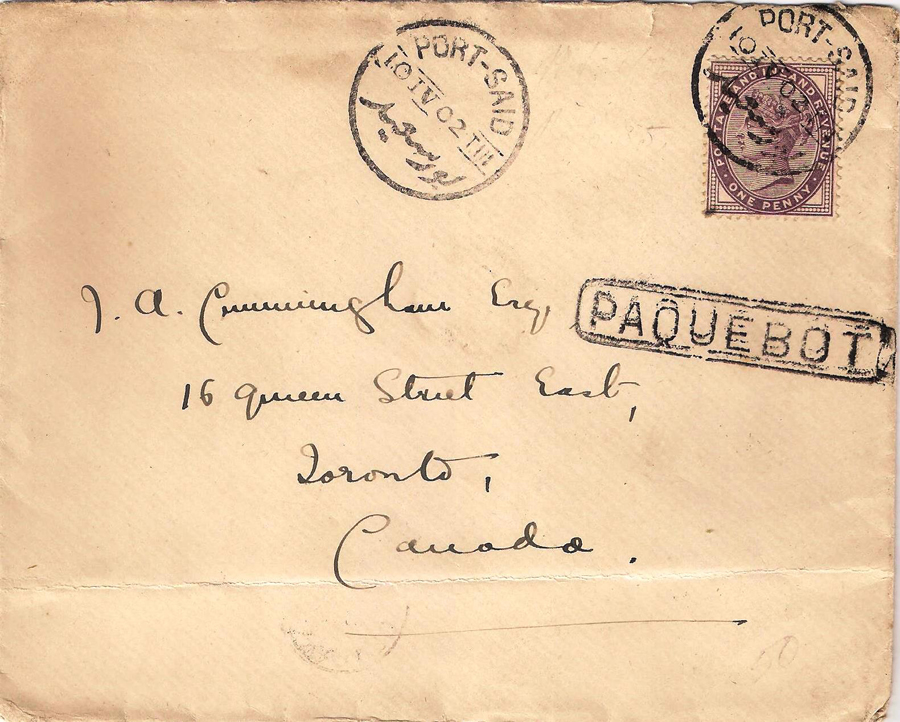 PORT-SAID
10 IV 02 TIII
بور سعيد
PORT-SAID
10 IV 02
POSTAGE AND INLAND REVENUE
ONE PENNY
J. A. Cunningham Esq,
PAQUEBOT
16 Queen Street East,
Toronto,
Canada.